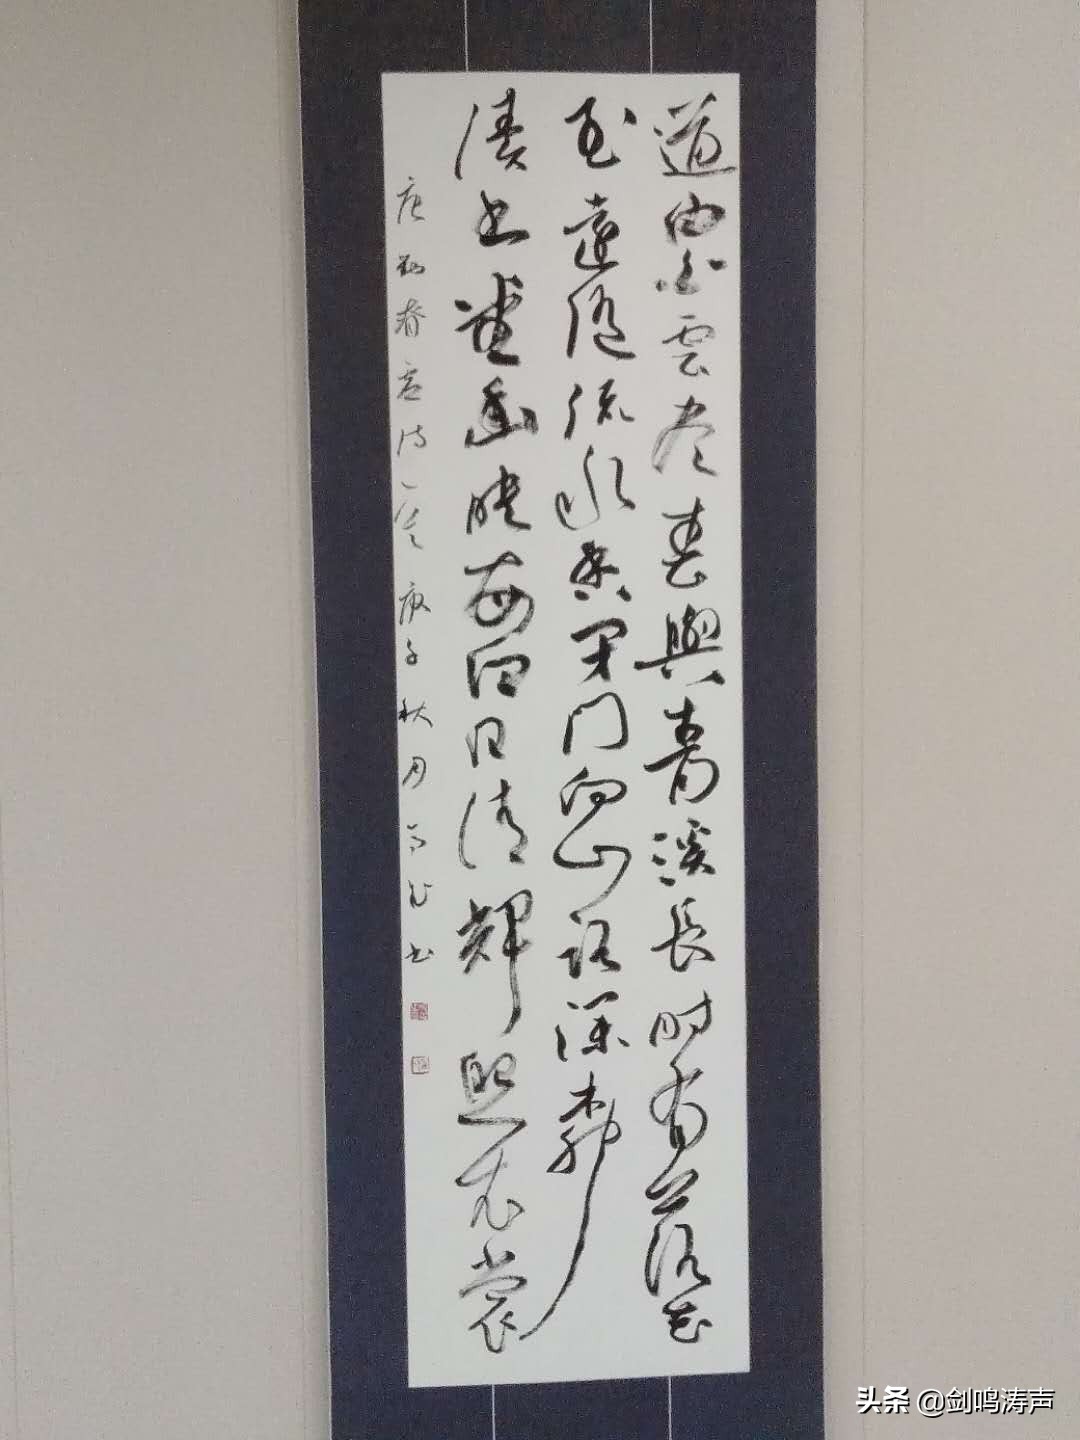 道由白雲尽春與青溪長时有落花
至遠随流水香闲门向山路深柳
读书堂幽映每白日清輝照衣裳
唐刘眘虚诗一首 庚子秋月 书
头条 @剑鸣涛声